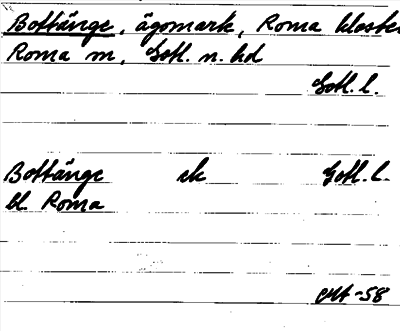 Bottänge, ägomark, Roma kloster
Roma sn, Gotl. n. hd
Gotl. l.
Bottänge ek Gotl. l.
bl. Roma
-58